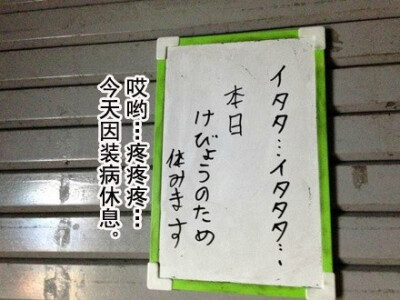 イタタ…イタタタ…、
本日
けびょうのため
休みます
哎哟…疼疼疼…
今天因装病休息。